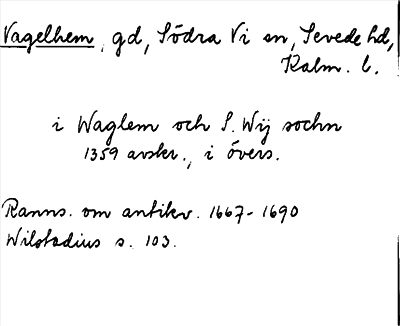 Vagelhem, gd, Södra Vi sn, Sevede hd,
Kalm. l.
i Waglem och S. Wij sochn
1359 avskr., i övers.
Ranns. om antikv. 1667-1690
Wilstadius s. 103.